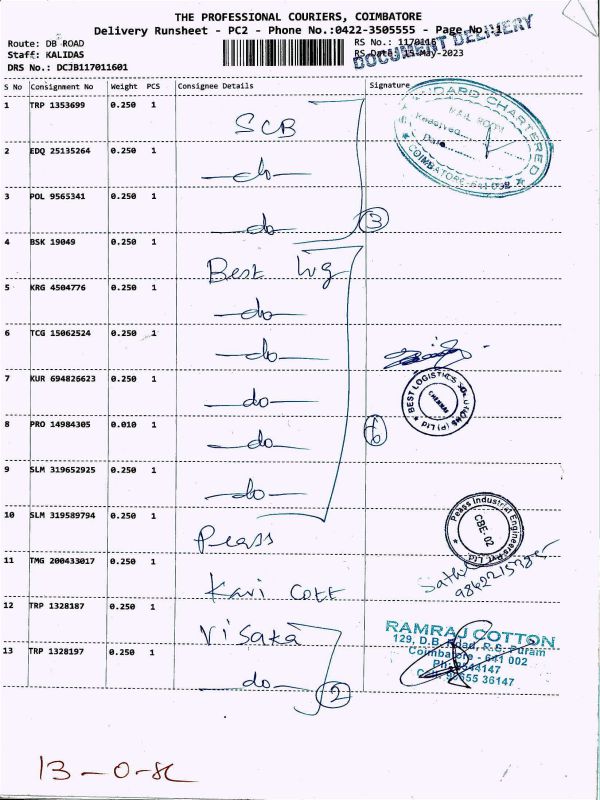 THE PROFESSIONAL COURIERS, COIMBATORE
Delivery Runsheet - PC2 - Phone No.:0422-3505555 - Page No.:1
Route: DB ROAD RS No.: 1170116
DOCUMENT DELIVERY
Staff: KALIDAS RS Date: 15-May-2023
DRS No.: DCJB117011601
S No Consignment No Weight PCS Consignee Details Signature
1 TRP 1353699 0.250 1 SCB
STANDARD CHARTERED
MAIL ROOM
Received
Date
COIMBATORE-641 018
2 EDQ 25135264 0.250 1 -do-
3 POL 9565341 0.250 1 -do-
3
4 BSK 19049 0.250 1 Best
5 KRG 4504776 0.250 1 -do-
6 TCG 15062524 0.250 1 -do-
7 KUR 694826623 0.250 1 -do-
BEST LOGISTICS SOLUTIONS (P) Ltd
CHENNAI
8 PRO 14984305 0.010 1 -do-
6
9 SLM 319652925 0.250 1 -do-
10 SLM 319589794 0.250 1 Peass
Peass Industrial Engineers Pvt. Ltd
CBE-02
11 TMG 200433017 0.250 1 Kavi Cott
12 TRP 1328187 0.250 1 Visaka
RAMRAJ COTTON
129, D.B. Road, R.S. Puram
Coimbatore - 641 002
13 TRP 1328197 0.250 1 -do-
2
13-0-